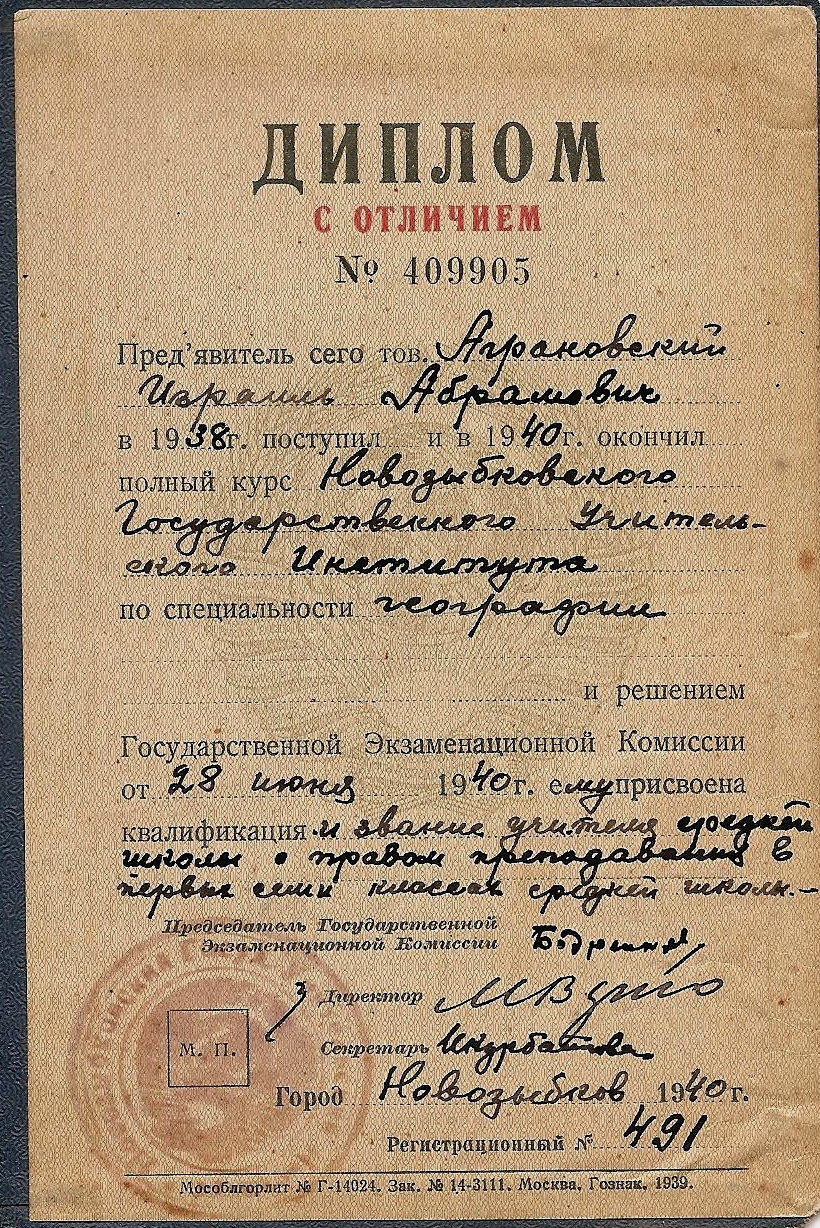 ДИПЛОМ
С ОТЛИЧИЕМ
№ 409905
Пред'явитель сего тов. Аграновский
Израиль Абрамович
в 1938г. поступил и в 1940г. окончил
полный курс Новозыбковского
Государственного Учитель-
ского Института
по специальности географии
и решением
Государственной Экзаменационной Комиссии
от 28 июня 1940г. ему присвоена
квалификация и звание учителя средней
школы с правом преподавания в
первых семи классах средней школы.-
Председатель Государственной
Экзаменационной Комиссии
Директор
М. П.
Секретарь
Город Новозыбков 1940г.
Регистрационный № 491
Мособлгорлит № Г-14024. Зак. № 14-3111. Москва. Гознак. 1939.